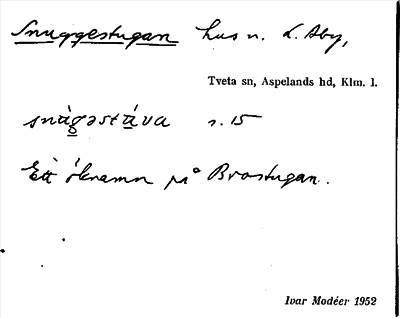 Snuggestugan hus n. L. Aby,
Tveta sn, Aspelands hd, Klm. l.
snùgəstùva s. 15
Ett öknamn på Brostugan.
Ivar Modéer 1952